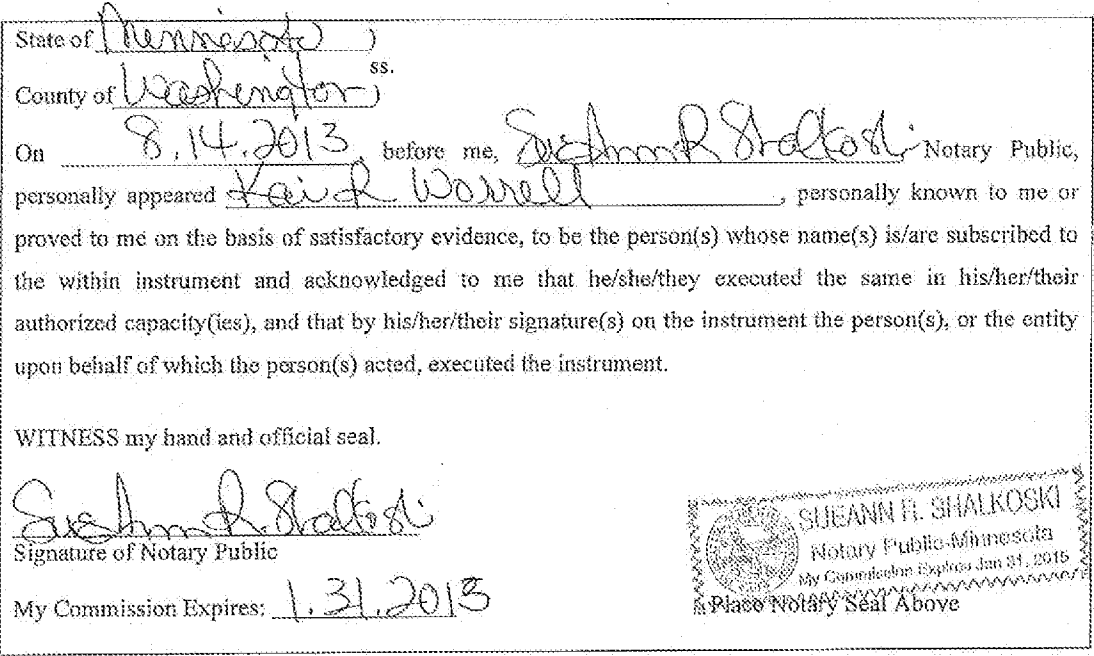 State of Minnesota )
ss.
County of Washington )
On 8.14.2013, before me, SueAnn R Shalkoski Notary Public,
personally appeared Kai R Worrell, personally known to me or
proved to me on the basis of satisfactory evidence, to be the person(s) whose name(s) is/are subscribed to
the within instrument and acknowledged to me that he/she/they executed the same in his/her/their
authorized capacity(ies), and that by his/her/their signature(s) on the instrument the person(s), or the entity
upon behalf of which the person(s) acted, executed the instrument.
WITNESS my hand and official seal.
SueAnn R Shalkoski
Signature of Notary Public
SUEANN R. SHALKOSKI
Notary Public-Minnesota
My Commission Expires Jan 31, 2015
My Commission Expires: 1.31.2015
Place Notary Seal Above